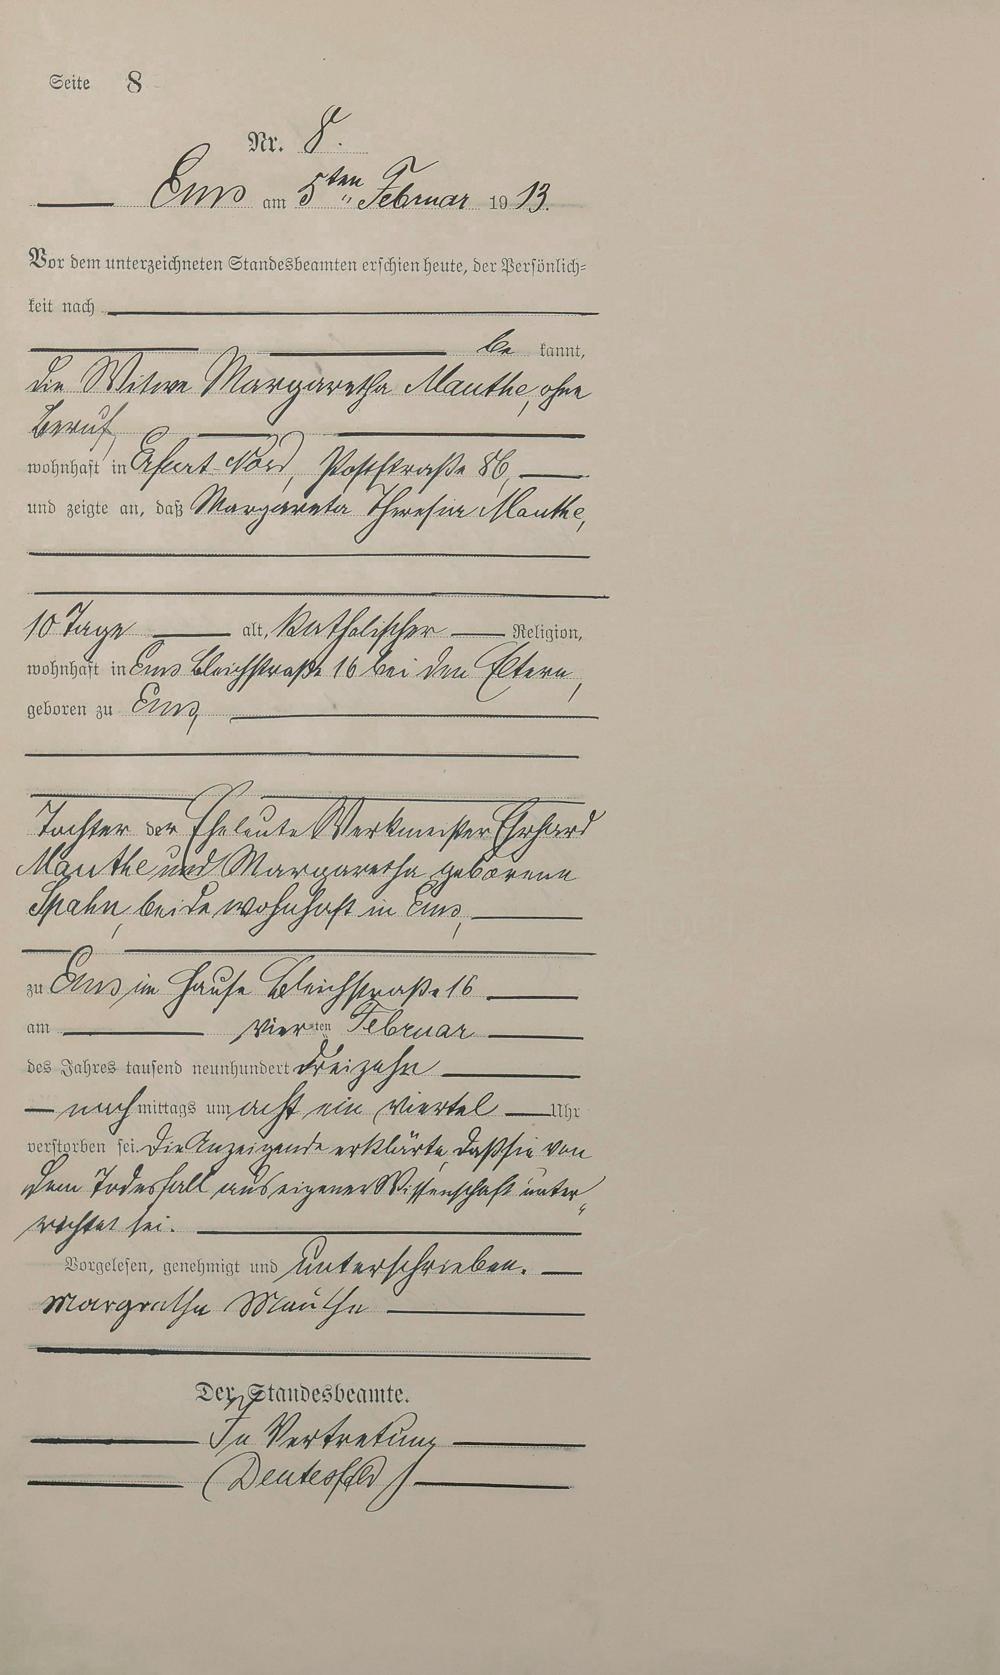 Seite 8
Nr. 8.
Ems am 5ten Februar 1913.
Vor dem unterzeichneten Standesbeamten erschien heute, der Persönlich-
keit nach
be kannt,
die Witwe Margaretha Manthe, ohne
Beruf,
wohnhaft in Erfurt-Nord, Poststraße 86,
und zeigte an, daß Margareta Theresia Manthe,
10 Tage alt, katholischer Religion,
wohnhaft in Ems Bleichstraße 16 bei den Eltern,
geboren zu Ems,
Tochter der Eheleute Werkmeister Ehrhard
Manthe und Margaretha geborene
Spahn, beide wohnhaft in Ems,
zu Ems im Hause Bleichstraße 16
am vierten Februar
des Jahres tausend neunhundert dreizehn
nachmittags um acht ein viertel Uhr
verstorben sei. Die Anzeigende erklärte, daß sie von
dem Todesfall aus eigener Wissenschaft unter-
richtet sei.
Vorgelesen, genehmigt und unterschrieben.
Margretha Mauthe
Der Standesbeamte.
In Vertretung